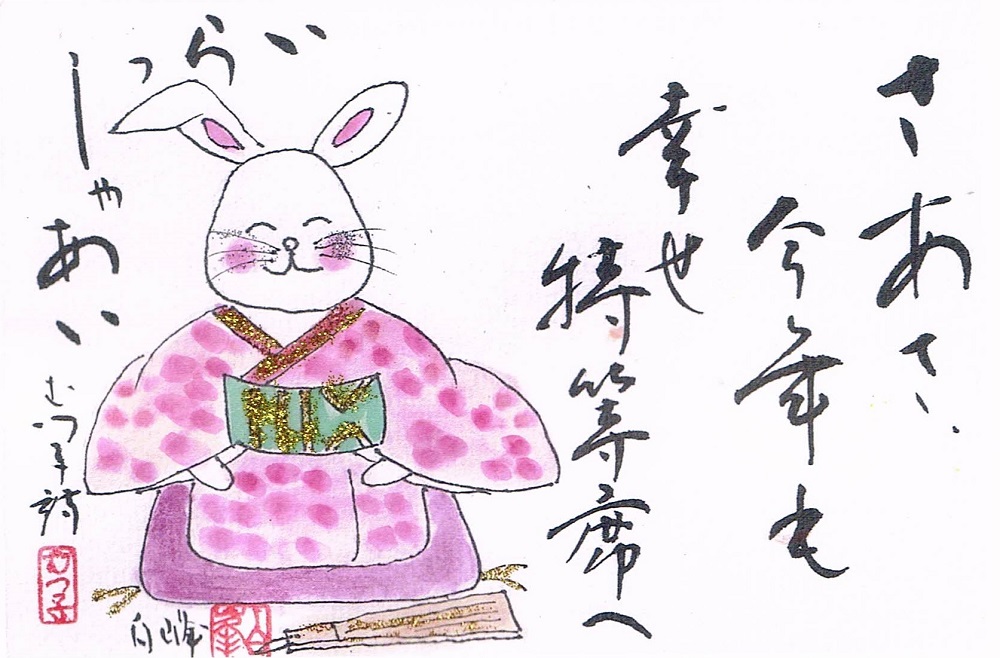 さあさ
今年も
幸せ
特等席へ
いらっ
しゃあい
むつ子詩
むつ子
白峰